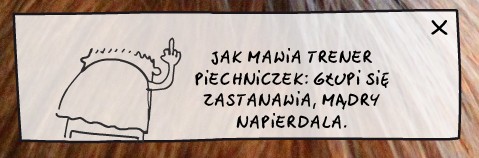 JAK MAWIA TRENER
PIECHNICZEK: GŁUPI SIĘ
ZASTANAWIA, MĄDRY
NAPIERDALA.